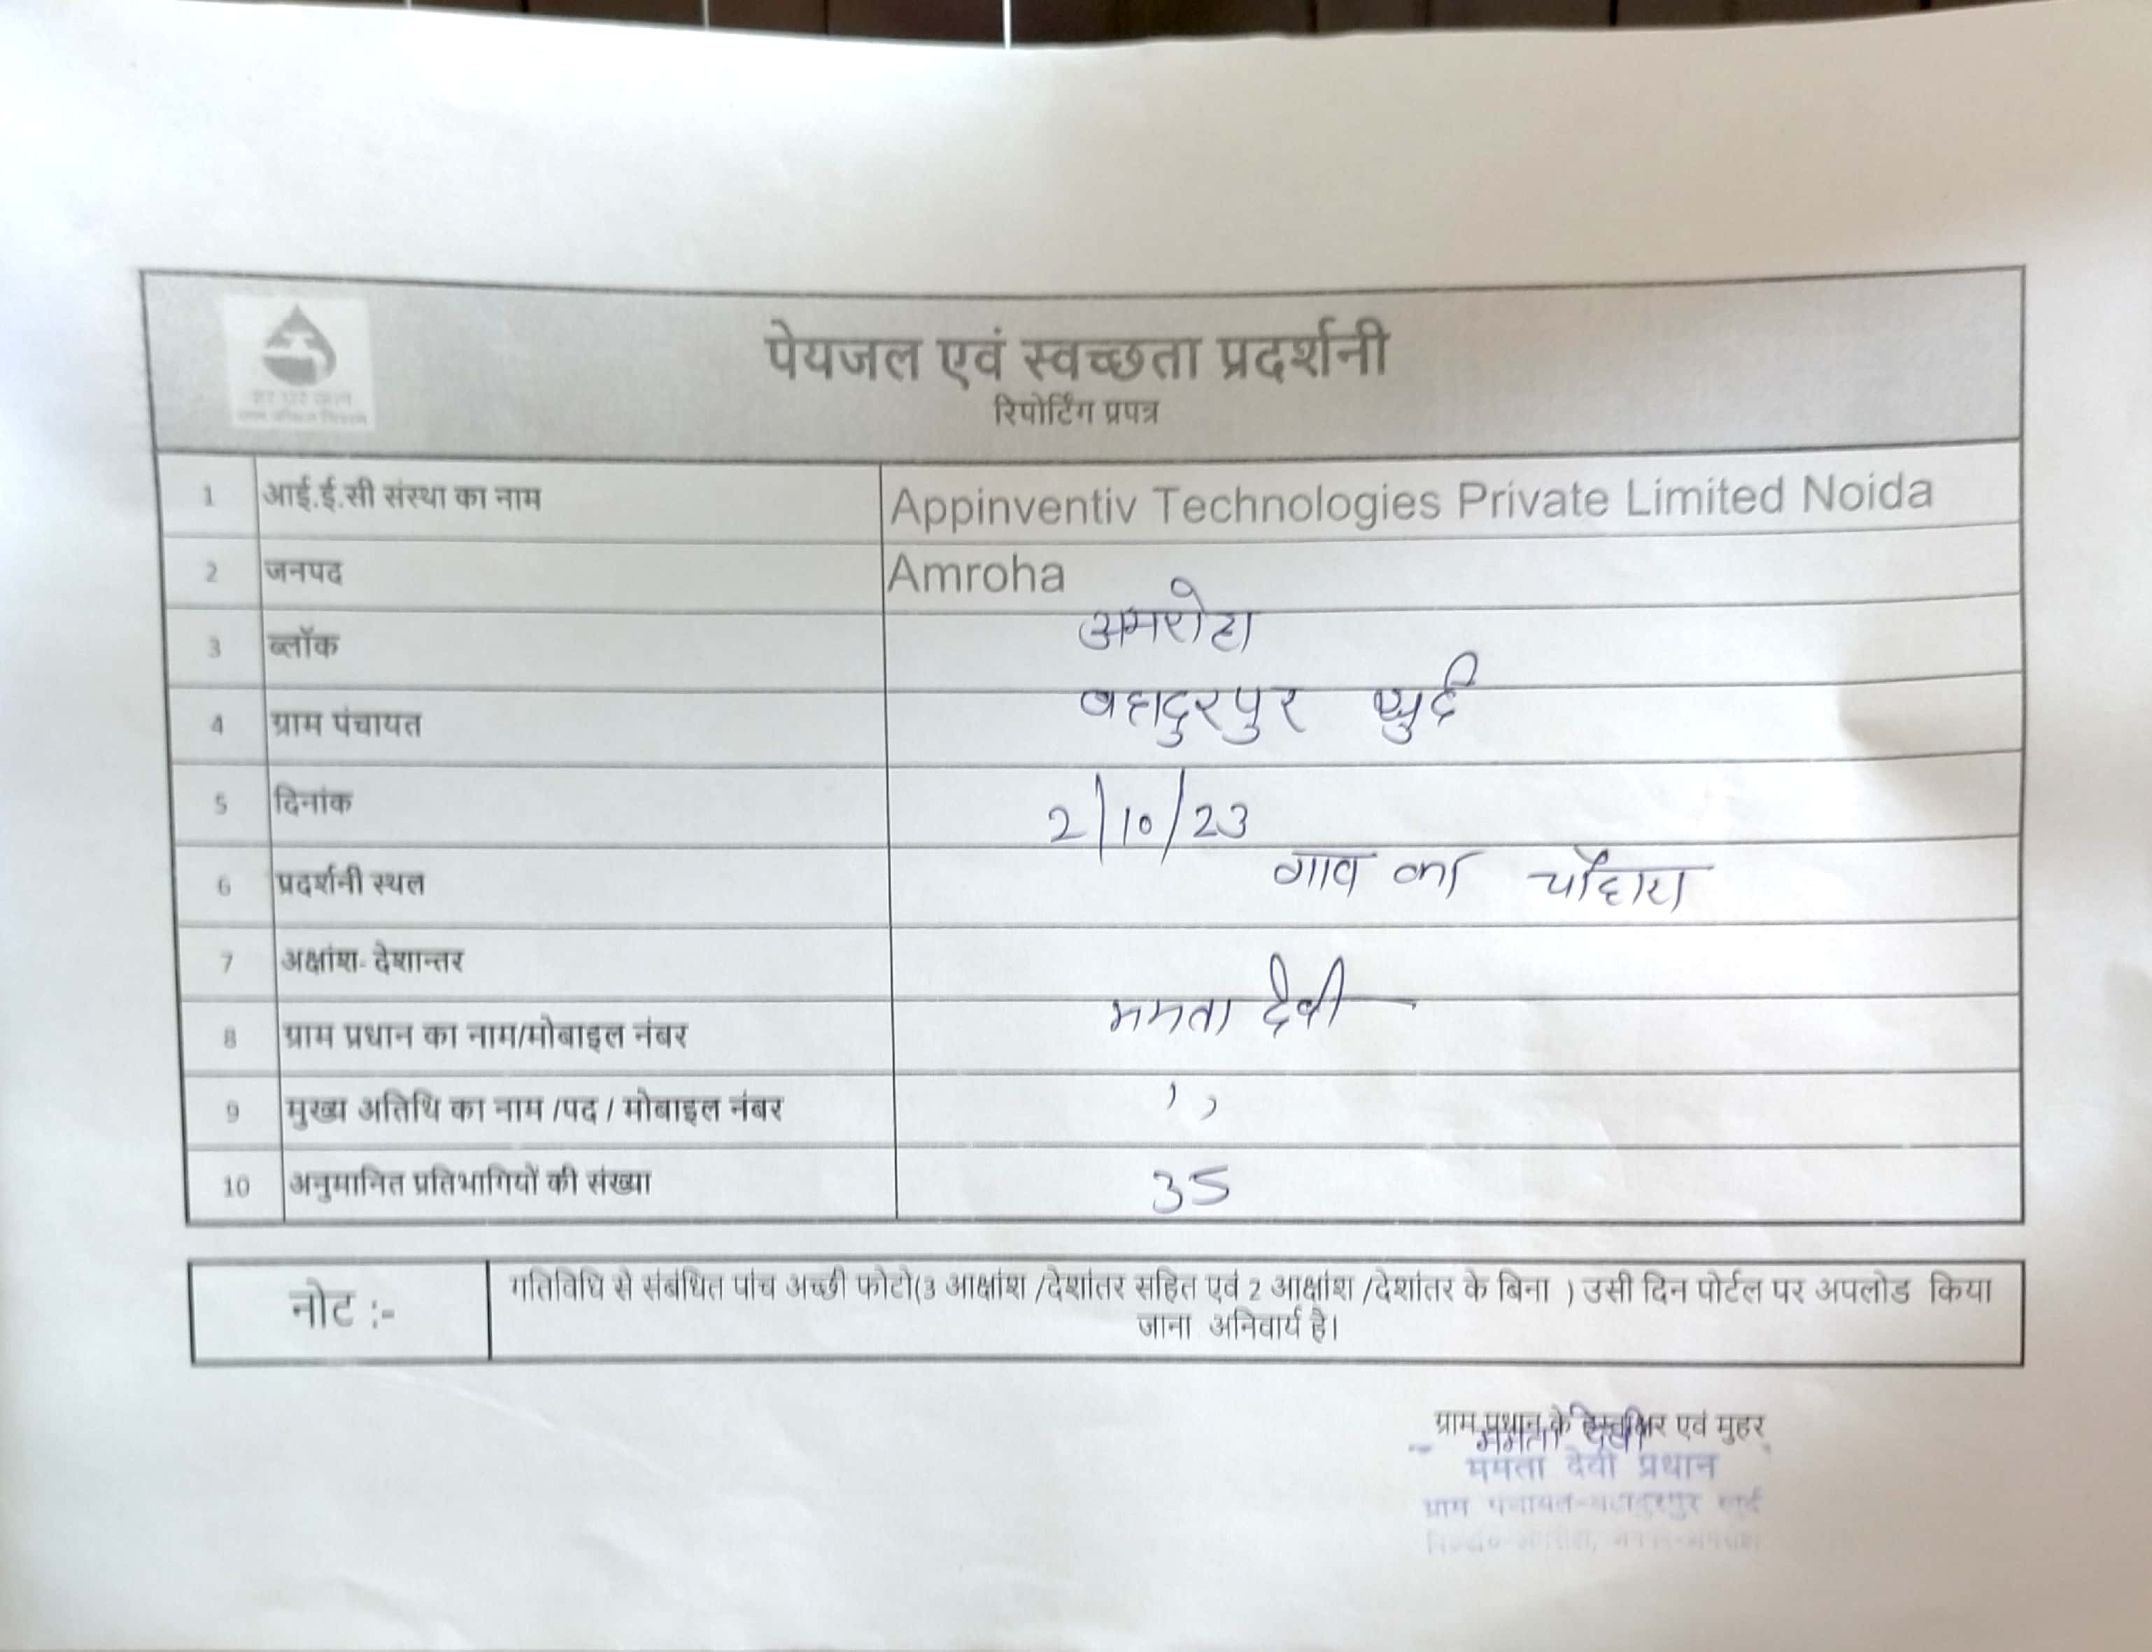 पेयजल एवं स्वच्छता प्रदर्शनी
रिपोर्टिंग प्रपत्र
1 आई.ई.सी संस्था का नाम Appinventiv Technologies Private Limited Noida
2 जनपद Amroha
3 ब्लॉक अमरोहा
4 ग्राम पंचायत बहादुरपुर खुर्द
5 दिनांक 2/10/23
6 प्रदर्शनी स्थल गाव का चौहारा
7 अक्षांश- देशान्तर
8 ग्राम प्रधान का नाम/मोबाइल नंबर ममता देवी
9 मुख्य अतिथि का नाम /पद / मोबाइल नंबर ,,
10 अनुमानित प्रतिभागियों की संख्या 35
नोट :- गतिविधि से संबंधित पांच अच्छी फोटो(3 आक्षांश /देशांतर सहित एवं 2 आक्षांश /देशांतर के बिना ) उसी दिन पोर्टल पर अपलोड किया
जाना अनिवार्य है।
ग्राम प्रधान के हस्ताक्षर एवं मुहर
ममता देवी
ममता देवी प्रधान
ग्राम पंचायत-बहादुरपुर खुर्द